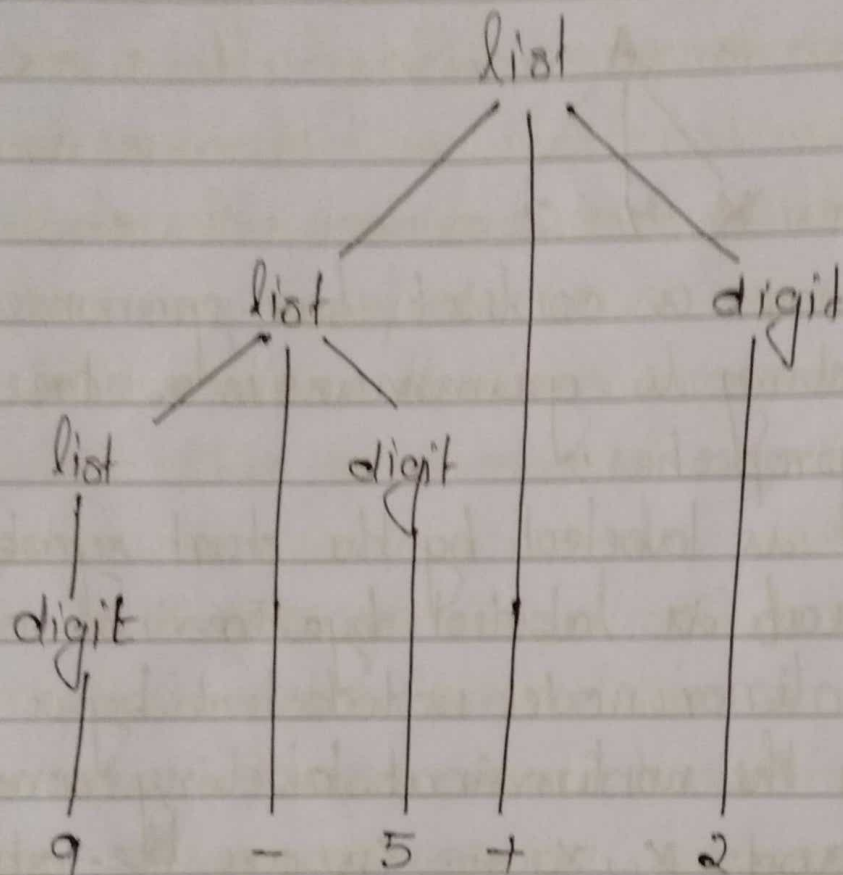 list
list digit
list digit
digit
9 - 5 + 2